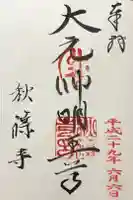 奉拝
大元帥明王
平成二十九年六月六日
秋篠寺